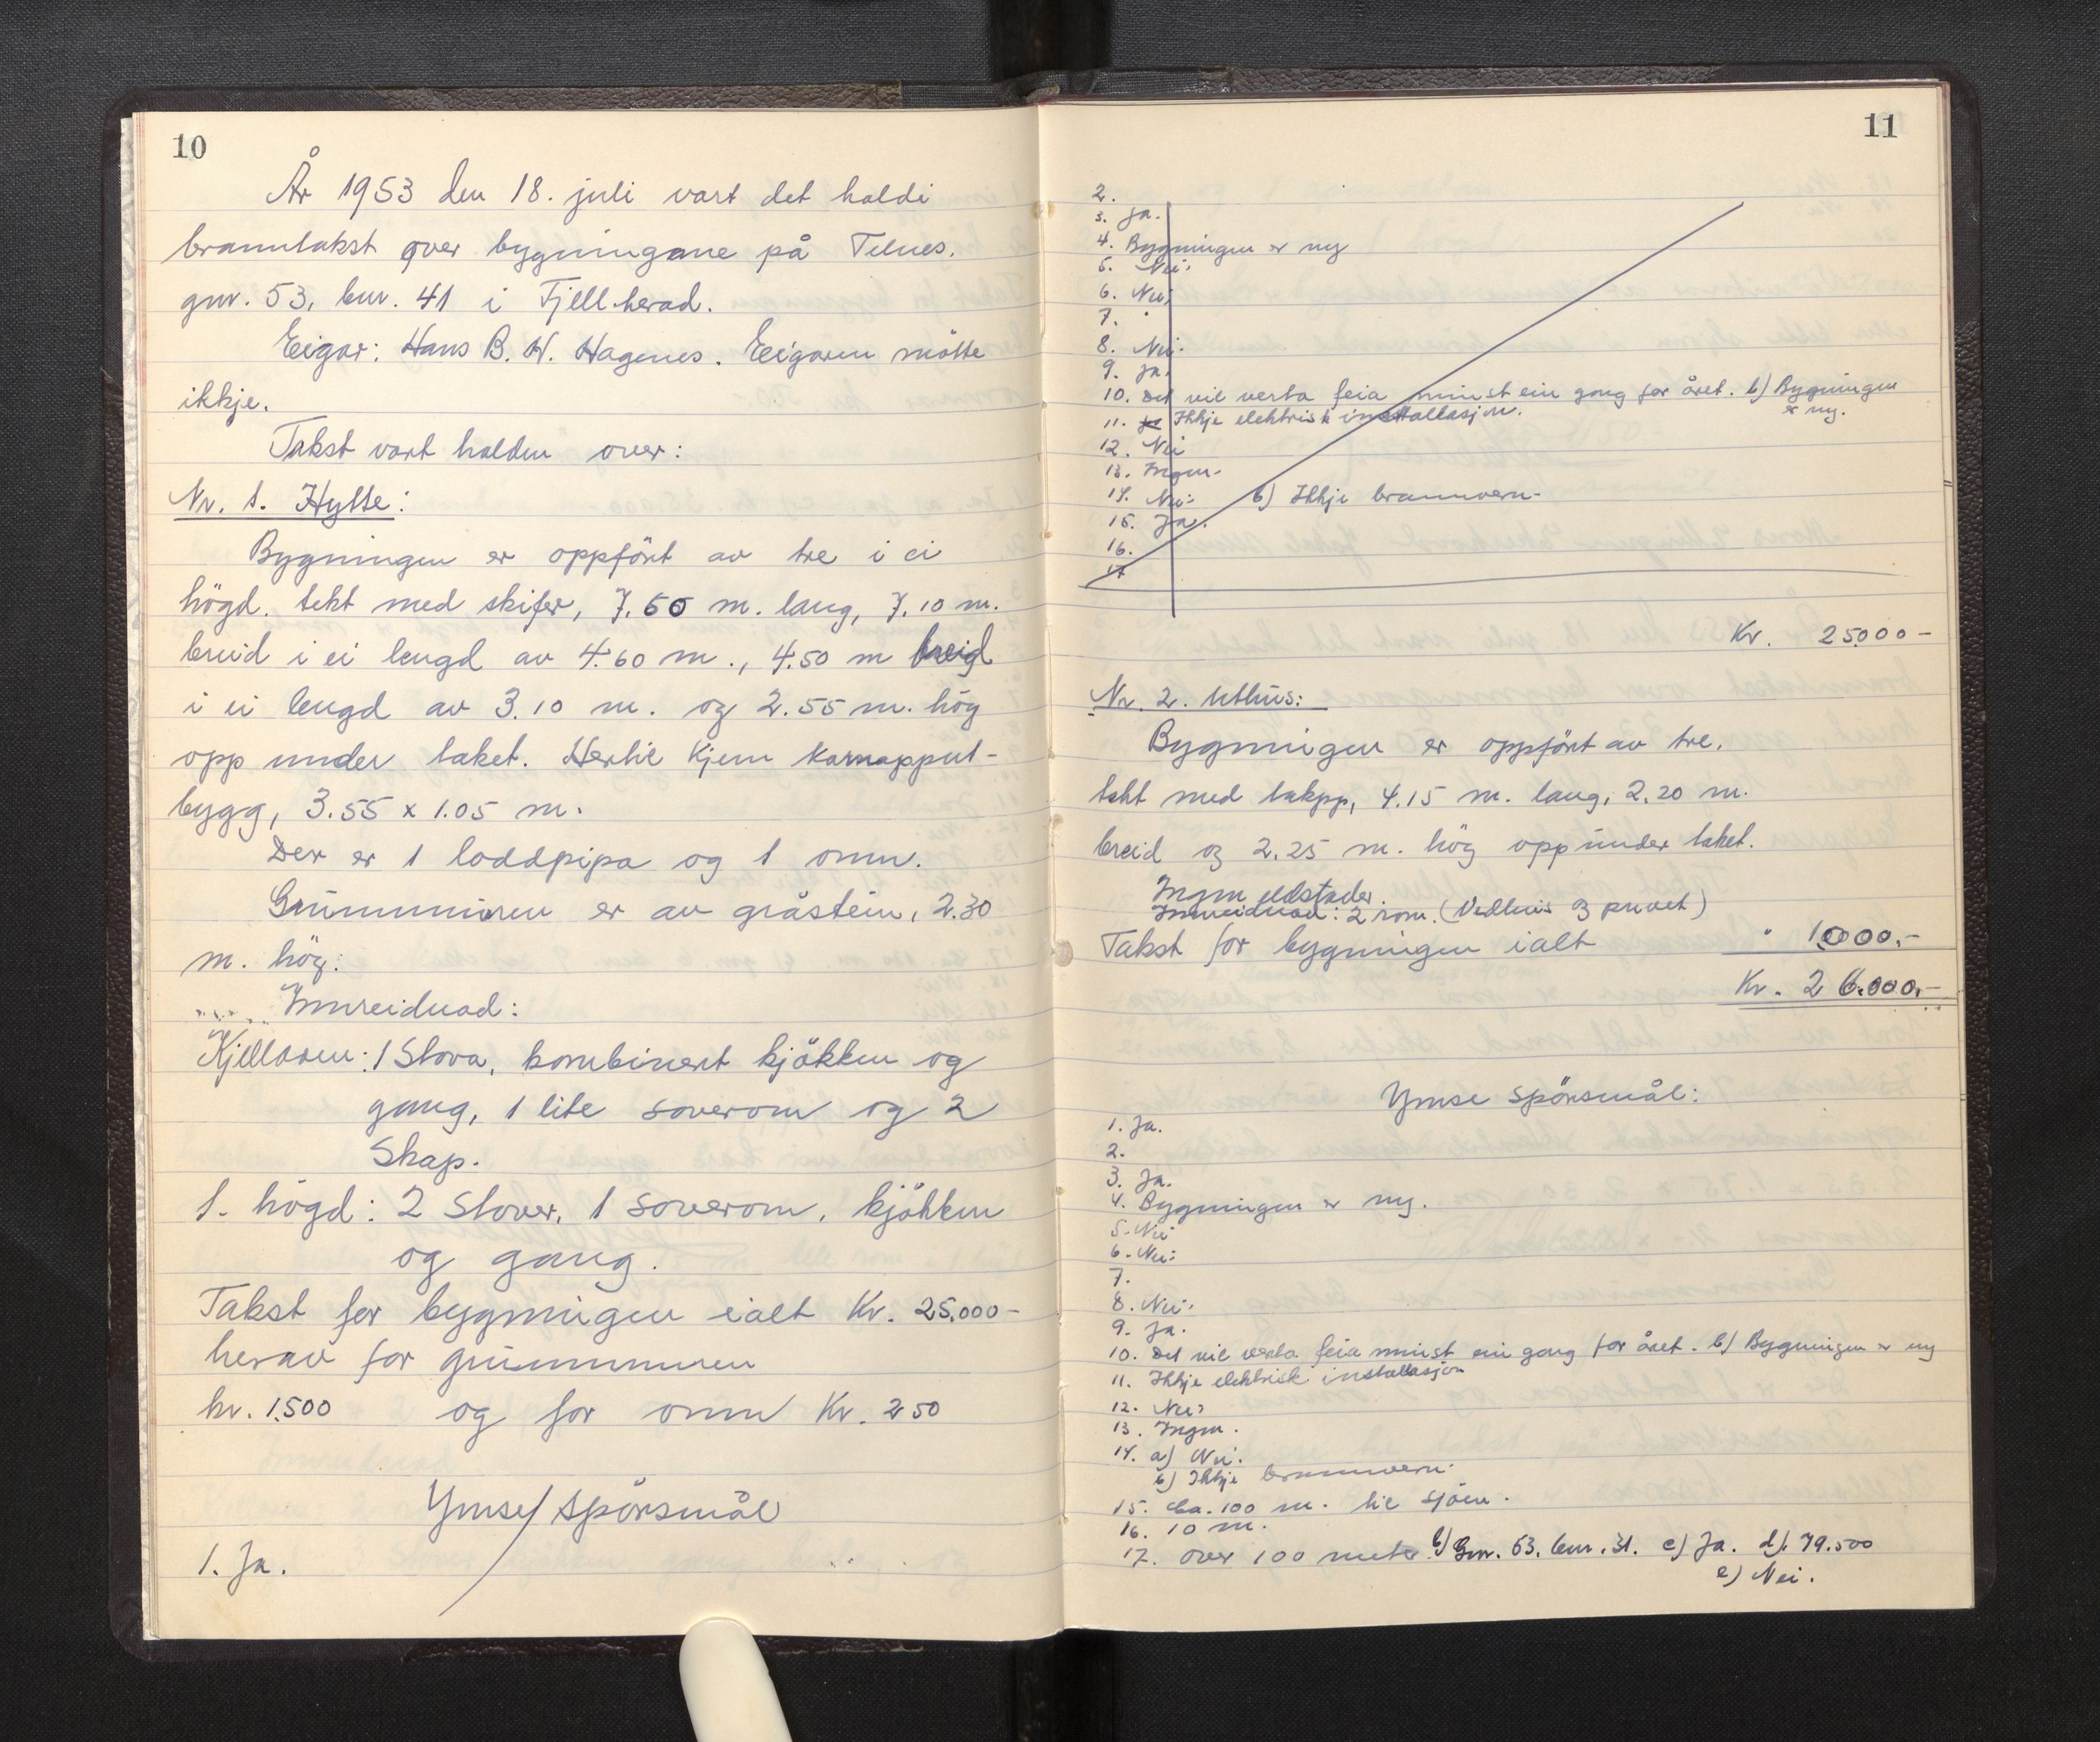 10
År 1953 den 18. juli vart det haldi
branntakst over bygningane på Telnes.
gnr. 53, bnr. 41 i Fjell herad.
Eigar: Hans B. H. Hagenes. Eigaren mötte
ikkje.
Takst vart halden over:
Nr. 1. Hytte:
Bygningen er oppfört av tre i ei
högd. tekt med skifer, 7.60 m. lang, 7.10 m.
breid i ei lengd av 4.60 m., 4.50 m breid
i ei lengd av 3.10 m. og 2.55 m. hög
opp under taket. Hertil kjem karnapput-
bygg, 3.55 x 1.05 m.
Der er 1 loddpipa og 1 omn.
Grunnmuren er av gråstein, 2.30
m. hög.
Innreidnad:
Kjellaren: 1 Stova, kombinert kjökken og
gang, 1 lite soverom og 2
Skap.
1. högd: 2 Stover, 1 soverom, kjökken
og gang.
Takst for bygningen ialt Kr. 25.000-
herav for grunnmuren
kr. 1.500 og for omn Kr. 250
Ymse spörsmål
1. Ja.
11
2.
3. Ja.
4. Bygningen er ny
5. Nei.
6. Nei.
7.
8. Nei.
9. Ja.
10. Det vil verta feia minst ein gong for året. b) Bygningen
er ny.
11. Ikkje elektrisk installasjon.
12. Nei
13. Ingen.
14. Nei. b) Ikkje brannvern.
15. Ja.
16.
17
Kr. 25000-
Nr. 2. Uthus:
Bygningen er oppfört av tre,
tekt med takpp, 4.15 m. lang, 2.20 m.
breid og 2.25 m. hög opp under taket.
Ingen eldstader.
Innreidnad: 2 rom. (Vedhus og privet)
Takst for bygningen ialt " 1000.-
Kr. 26.000,-
Ymse spörsmål:
1. Ja.
2.
3. Ja.
4. Bygningen er ny.
5. Nei
6. Nei.
7.
8. Nei.
9. Ja.
10. Det vil verta feia minst ein gong for året. b) Bygningen er ny
11. Ikkje elektrisk installasjon
12. Nei
13. Ingen.
14. a) Nei.
b) Ikkje brannvern.
15. Ca. 100 m. til sjöen.
16. 10 m.
17. over 100 meter b) Gnr. 53, bnr. 31. c) Ja. d) 79.500
e) Nei.